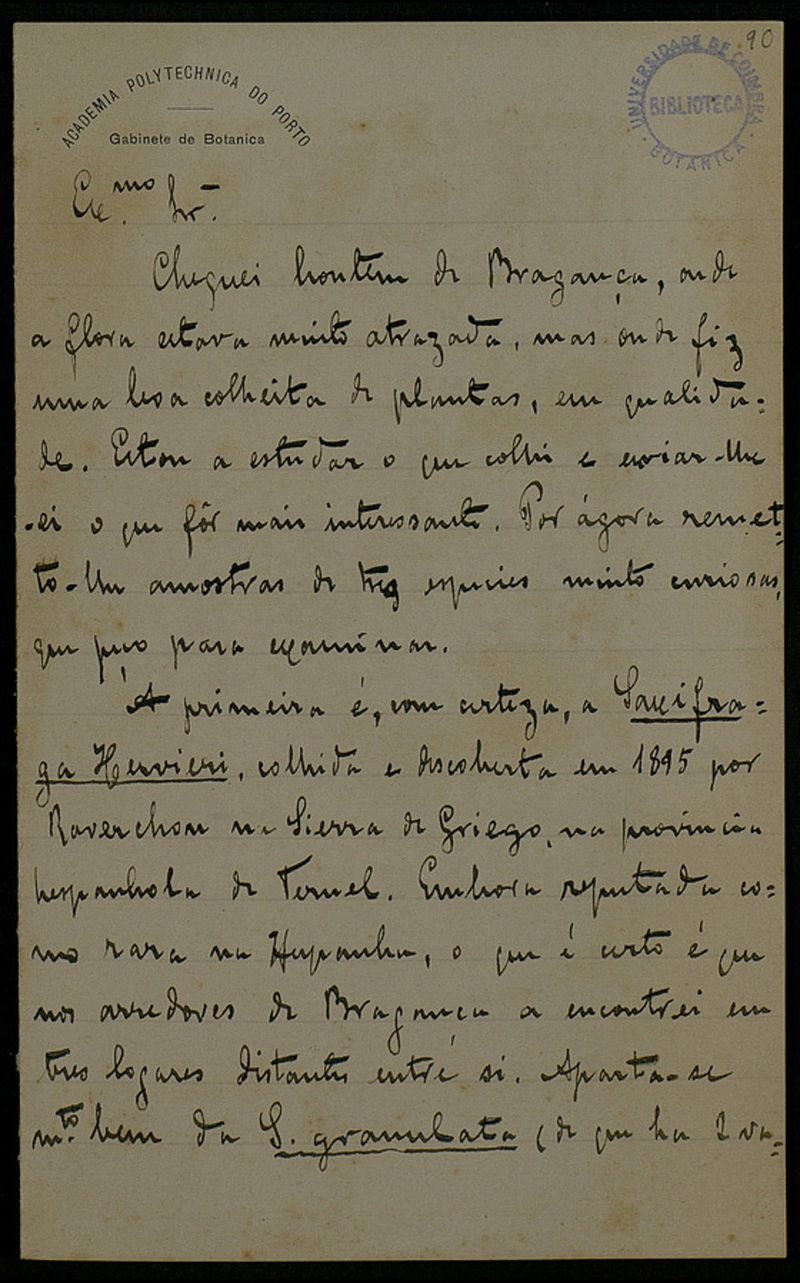 90
ACADEMIA POLYTECHNICA DO PORTO
Gabinete de Botanica
UNIVERSIDADE DE COIMBRA
BIBLIOTECA
BOTANICA
Ex.mo Sr.
Cheguei hontem de Bragança, onde
a flora estava muito atrazada, mas onde fiz
uma boa colheita de plantas, em qualida-
de. Estou a estudar o que colhi e enviar-lhe
-ei o que fôr mais interessante. Por ágora remet-
to-lhe amostras de trez especies muito curiosas,
que peço para examinar.
A primeira é, com certeza, a Saxifra-
ga Hervieri, colhida e descoberta em 1895 por
Reverchon na Sierra de Griego, na provincia
hespanhola de Teruel. Embora reputada co-
mo rara na Hespanha, o que é certo é que
nos arredores de Bragança a encontrei em
tres logares distantes entre si. Aparta-se
m.to bem da S. granulata (de que ha 2 va-